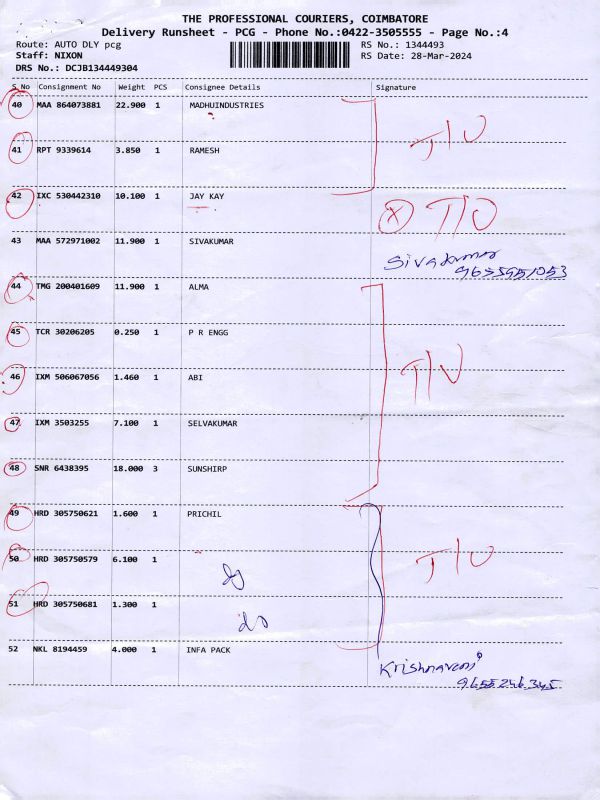 THE PROFESSIONAL COURIERS, COIMBATORE
Delivery Runsheet - PCG - Phone No.:0422-3505555 - Page No.:4
Route: AUTO DLY pcg RS No.: 1344493
Staff: NIXON RS Date: 28-Mar-2024
DRS No.: DCJB134449304
S No Consignment No Weight PCS Consignee Details Signature
40 MAA 864073881 22.900 1 MADHUINDUSTRIES
T/U
41 RPT 9339614 3.850 1 RAMESH
42 IXC 530442310 10.100 1 JAY KAY
T/U
43 MAA 572971002 11.900 1 SIVAKUMAR Sivakumar
44 TMG 200401609 11.900 1 ALMA
45 TCR 30206205 0.250 1 P R ENGG
46 IXM 506067056 1.460 1 ABI T/U
47 IXM 3503255 7.100 1 SELVAKUMAR
48 SNR 6438395 18.000 3 SUNSHIRP
49 HRD 305750621 1.600 1 PRICHIL
50 HRD 305750579 6.100 1 T/U
do
51 HRD 305750681 1.300 1
do
52 NKL 8194459 4.000 1 INFA PACK Krishnaveni
9655246345